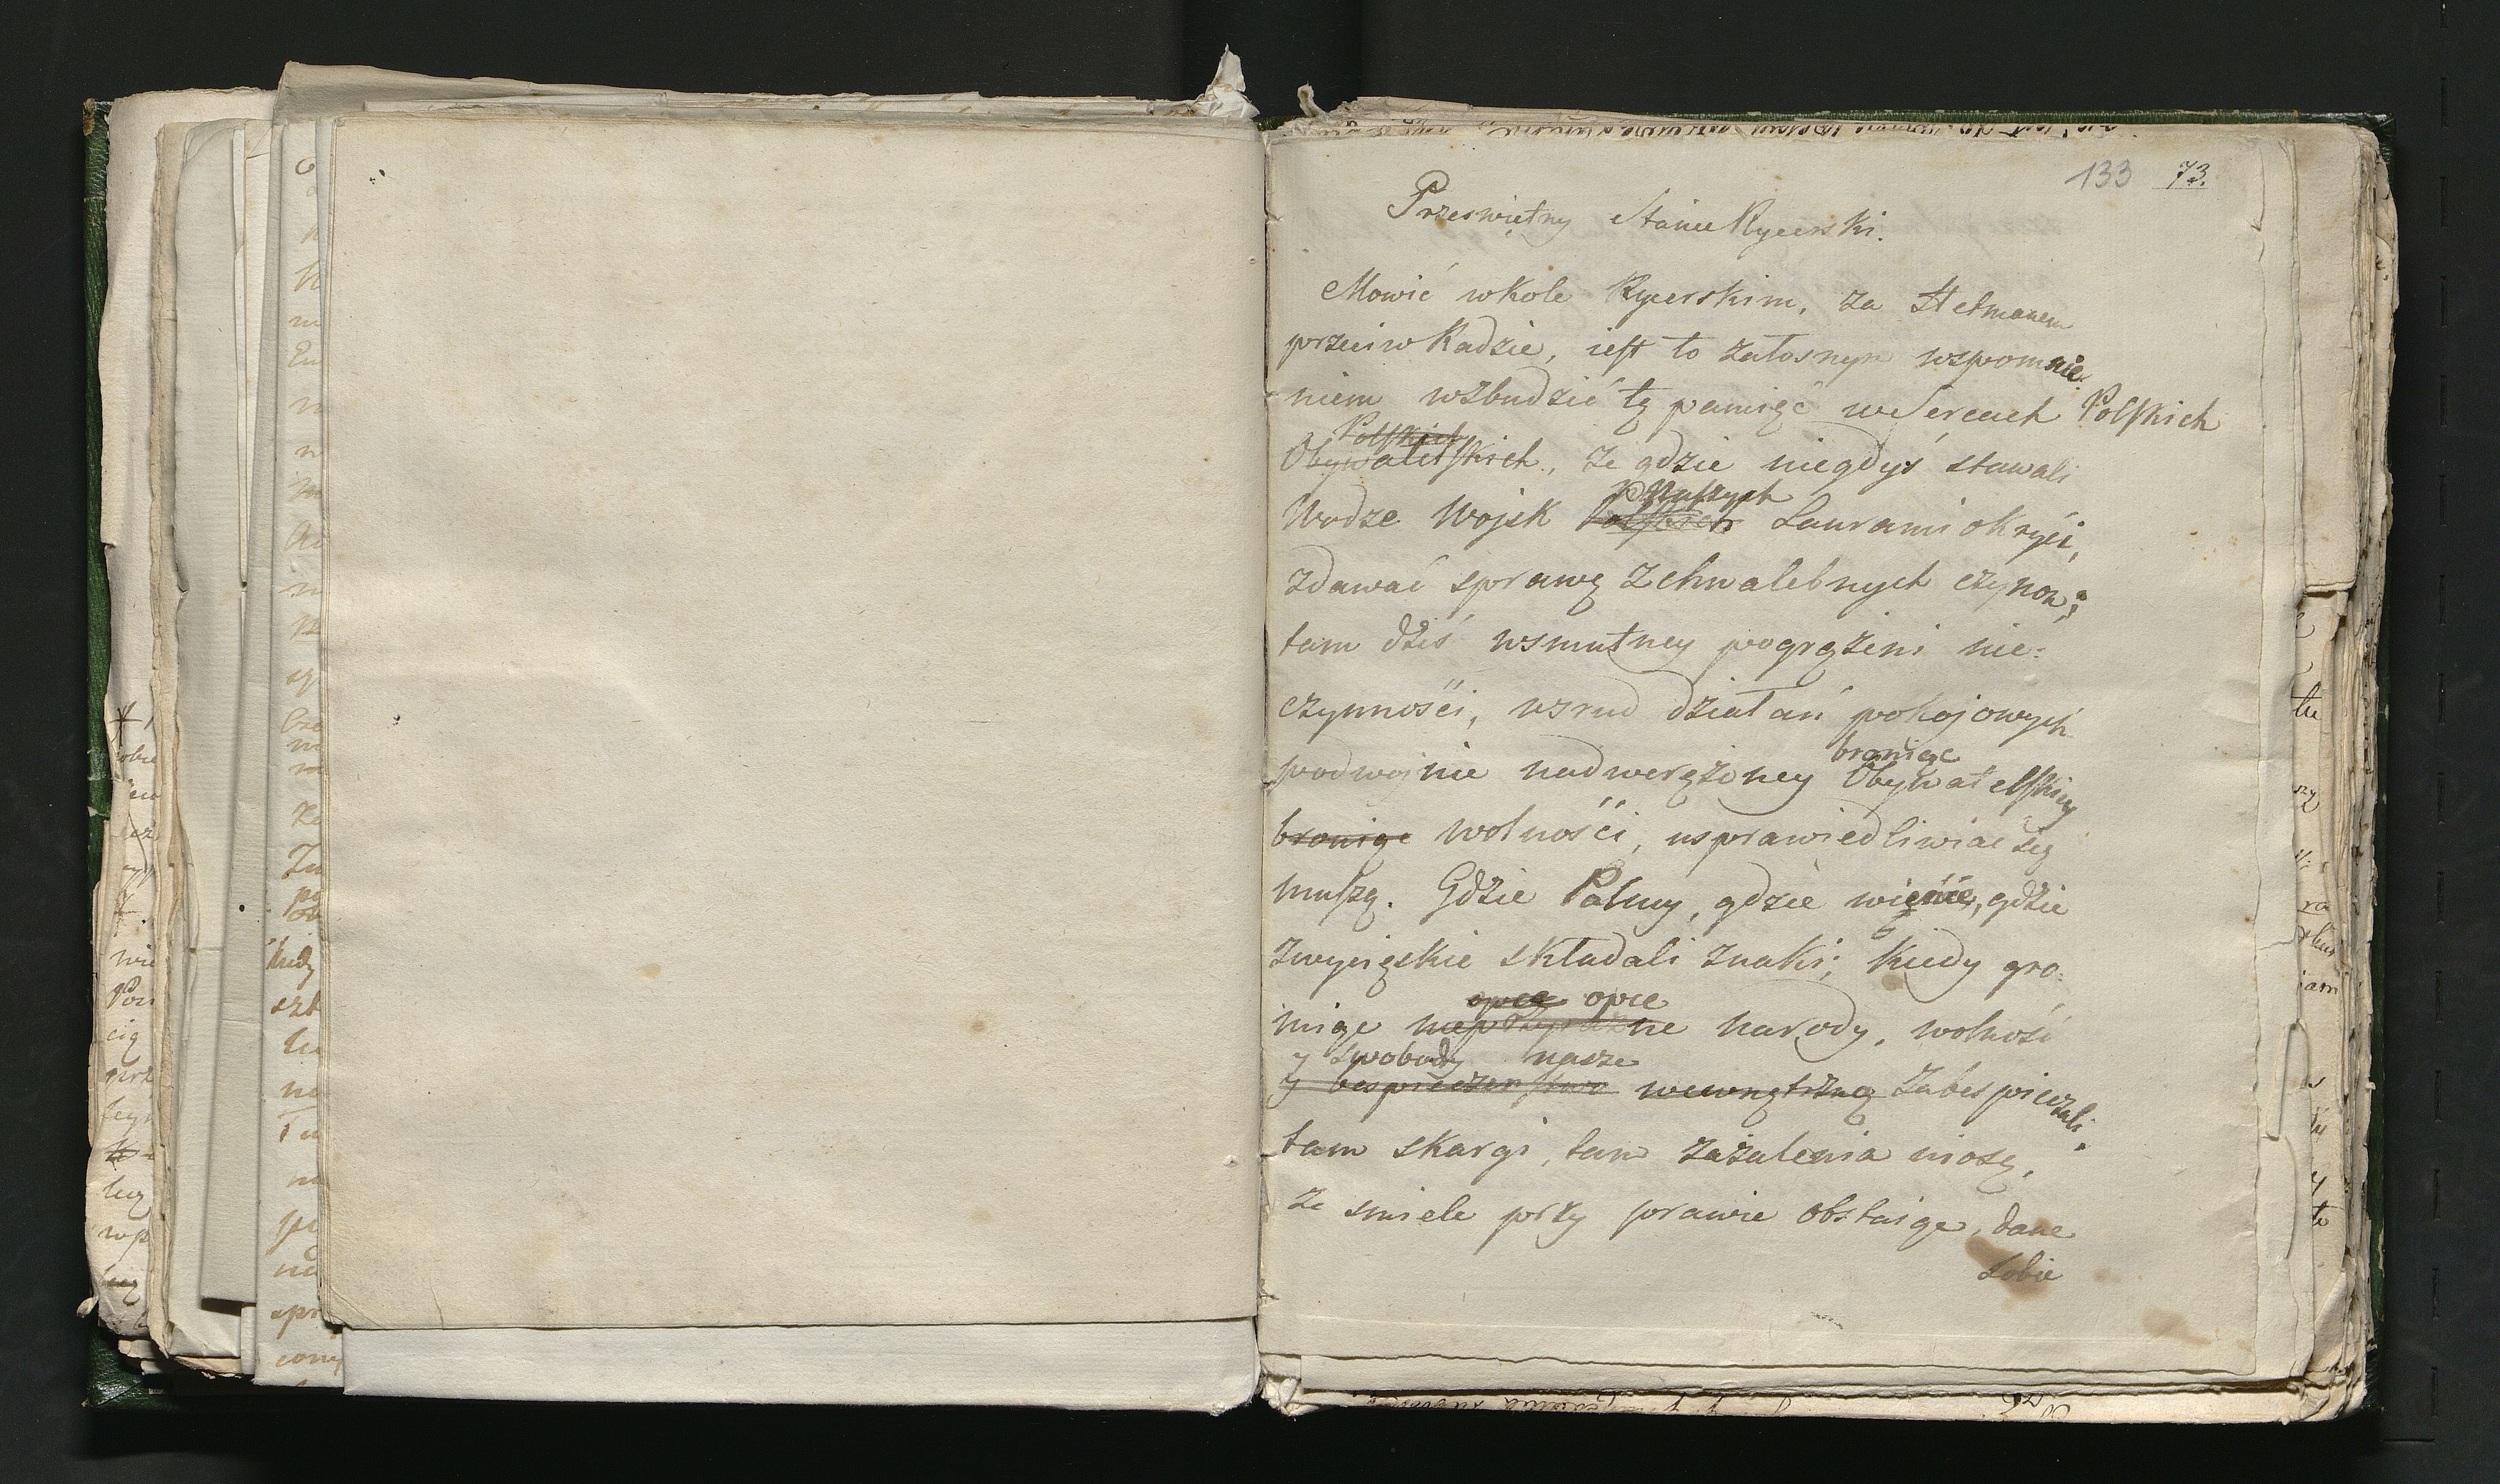 133 73.
Przeświętny Stanie Rycerski.
Mowić w kole Rycerskim, za Hetmanem
przeciw Radzie, iest to żałosnym wspomnie
niem wzbudzić tę pamięć w Sercach Polskich
Polskich
Obywatelskich, że gdzie niegdyś stawali
Naszych
Wodze Wojsk Polskich Laurami okryći,
zdawać sprawę z chwalebnych czynow;
tam dziś w smutney pogrążeni nie:
czynnośći, wsrud działań pokojowych
broniąc
podwojnie nadwerężoney Obywatelskiey
broniąc wolnośći, usprawiedliwiać się
muszą. Gdzie Palmy, gdzie wieńce, gdzie
zwycięskie składali znaki; kiedy gro:
opce opce
miąc nieprzyiazne narody, wolność
y swobody nasze
y bespieczenstwo wewnętrzną zabespieczali.
tam skargi, tam zażalenia niosą,
że smiele przy prawie obstaiąc, dane
sobie